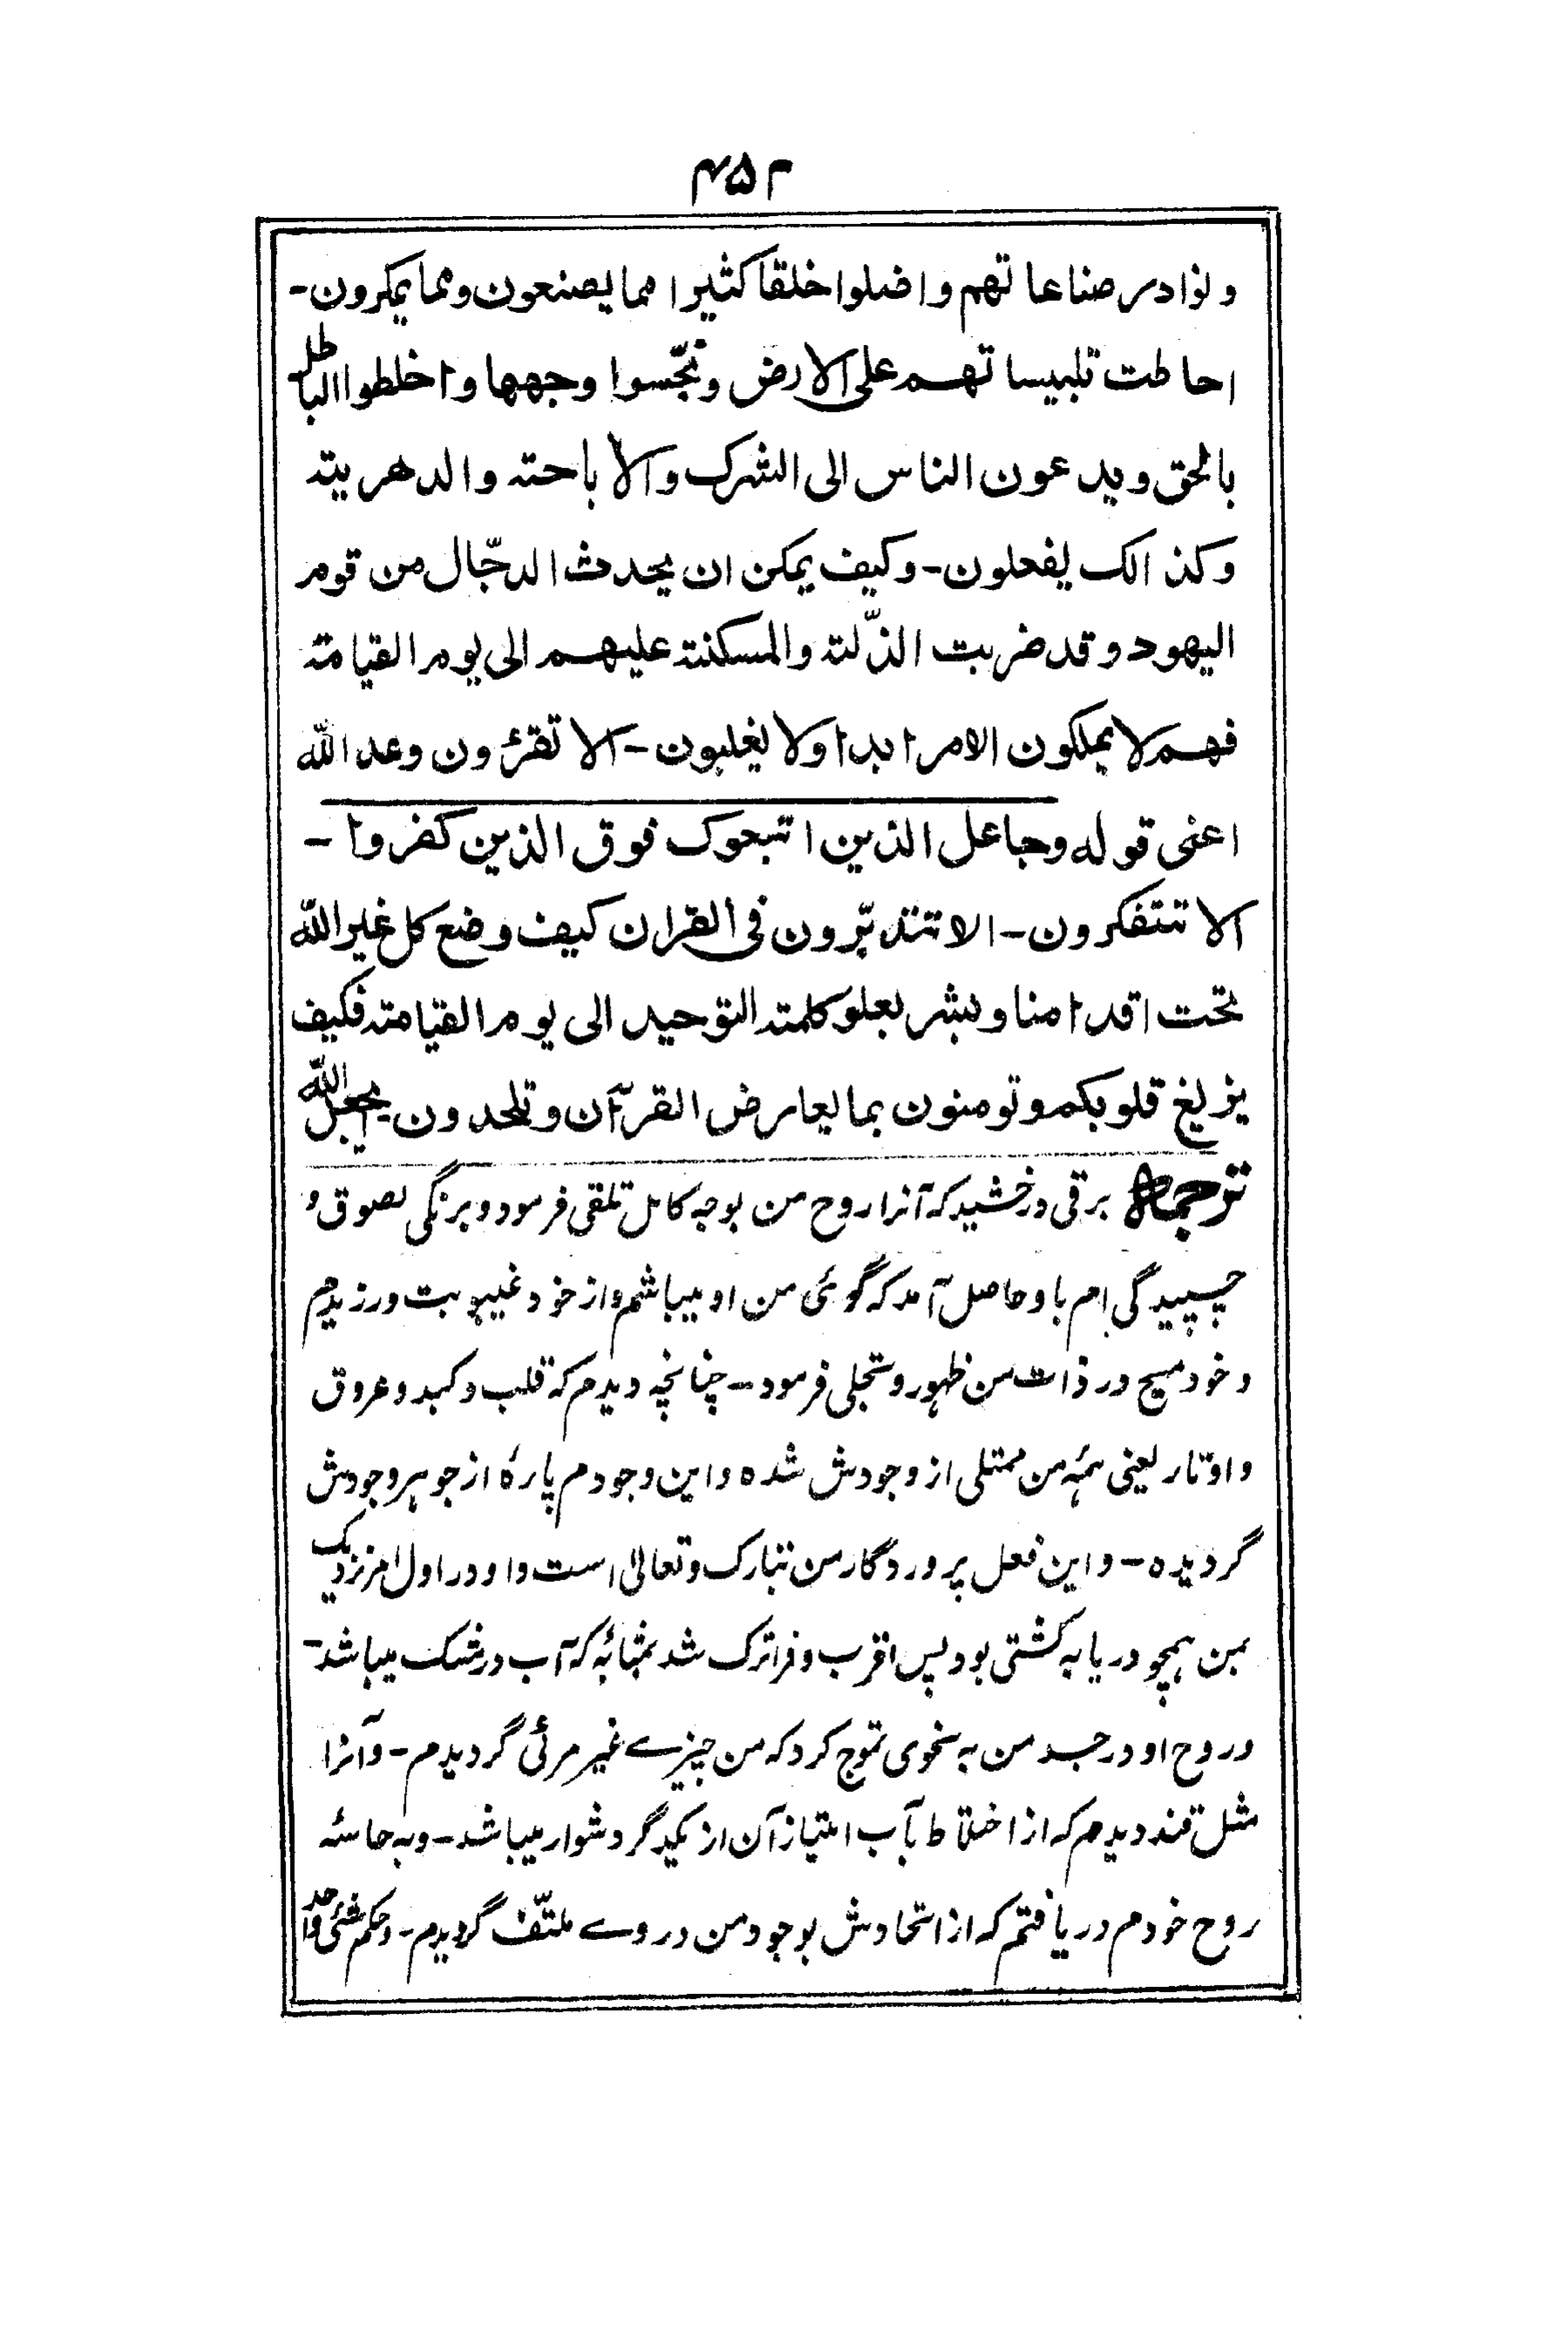 ۴۵۲
ونوادر صناعاتهم واضلوا خلقا كثيرا مما يصنعون ومما يمكرون-
احاطت تلبيساتهم على الارض ونجّسوا وجهها واخلطوا الباطل
بالحق ويدعون الناس الى الشرك والاباحة والدهرية
وكذالك يفعلون- وكيف يمكن ان يحدث الدجّال من قوم
اليهود وقد ضربت الذّلة والمسكنة عليهم الى يوم القيامة
فهم لا يملكون الامر ابدا ولا يغلبون- الا تقرءون وعد الله
اعنى قوله وجاعل الذين اتبعوك فوق الذين كفروا-
الا تتفكرون- الا تتدبّرون فى القران كيف وضع كل غير الله
تحت اقدامنا وبشر بعلو كلمة التوحيد الى يوم القيامة فكيف
يزيغ قلوبكم وتومنون بما يعارض القرآن وتلحدون- ايجعل الله
ترجمه برقی درخشید کہ آنرا روح من بوجہ کامل تلقی فرمود و برنگی لصوق و
چسپیدگی ام باو حاصل آمد کہ گوئی من او میباشم و از خود غیبوبت ورزیدم
و خود مسیح در ذات من ظہور و تجلی فرمود- چنانچہ دیدم کہ قلب و کبد و عروق
و اوتار یعنی ہمہ من ممتلی از وجودش شدہ و این وجودم پارۂ از جوہر وجودش
گردیدہ- و این فعل پروردگار من تبارک و تعالیٰ است و او در اول امر نزدیک
بمن ہمچو دریا بہ کشتی بود پس اقرب و فراترک شد بمثابۂ کہ آب در مشک میباشد-
و روح او در جسد من بہ نحوی تموج کرد کہ من چیزے غیر مرئی گردیدم- و آنرا
مثل قند دیدم کہ از اختلاط بآب امتیاز آن از یکدگر دشوار میباشد- و بہ حاسۂ
روح خودم دریافتم کہ از اتحادش بوجود من در وے ملتفّ گردیدم- و حکم شئی واحد